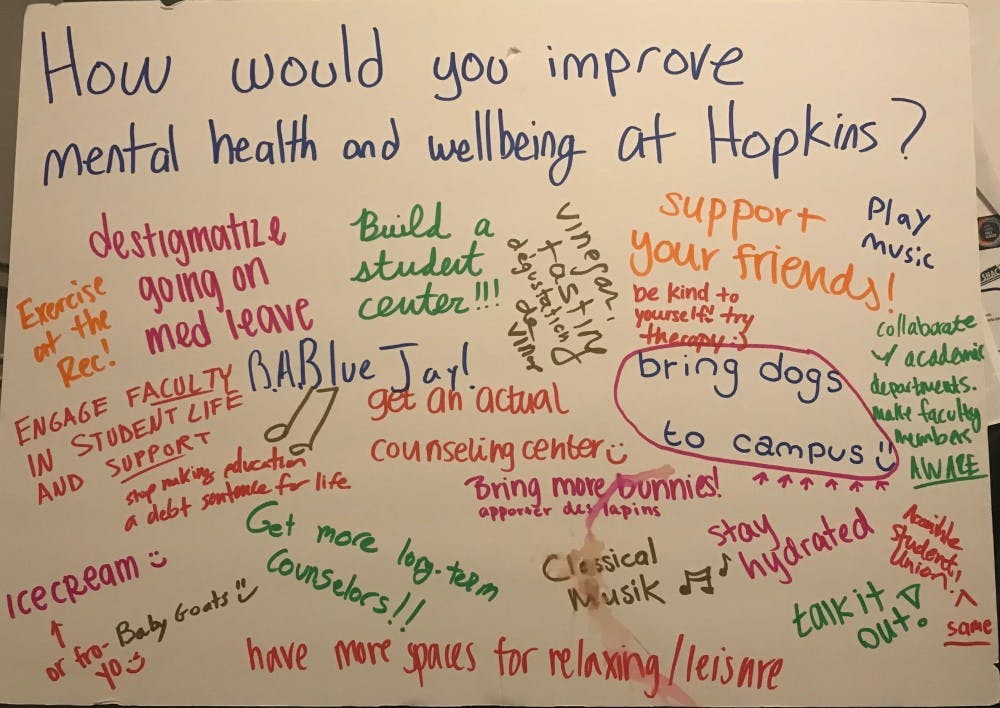 How would you improve
mental health and wellbeing at Hopkins?
destigmatize
going on
med leave
Build a
student
center!!!
vinegar
tasting
dégustation
de vinegar
support
your friends!
Play
music
Exercise
at the
Rec!
be kind to
yourself! try
therapy :)
collaborate
w/ academic
departments.
make faculty
members
AWARE
B.A.Blue Jay!
bring dogs
to campus
ENGAGE FACULTY
IN STUDENT LIFE
AND SUPPORT
get an actual
counseling center
stop making education
a debt sentence for life
Bring more bunnies!
apporter des lapins
Get more long-term
counselors!!
Classical
Musik
stay
hydrated
Accessible
Student
Union!
^
same
Icecream
or fro-
yo
Baby Goats
talk it
out!
have more spaces for relaxing/leisure